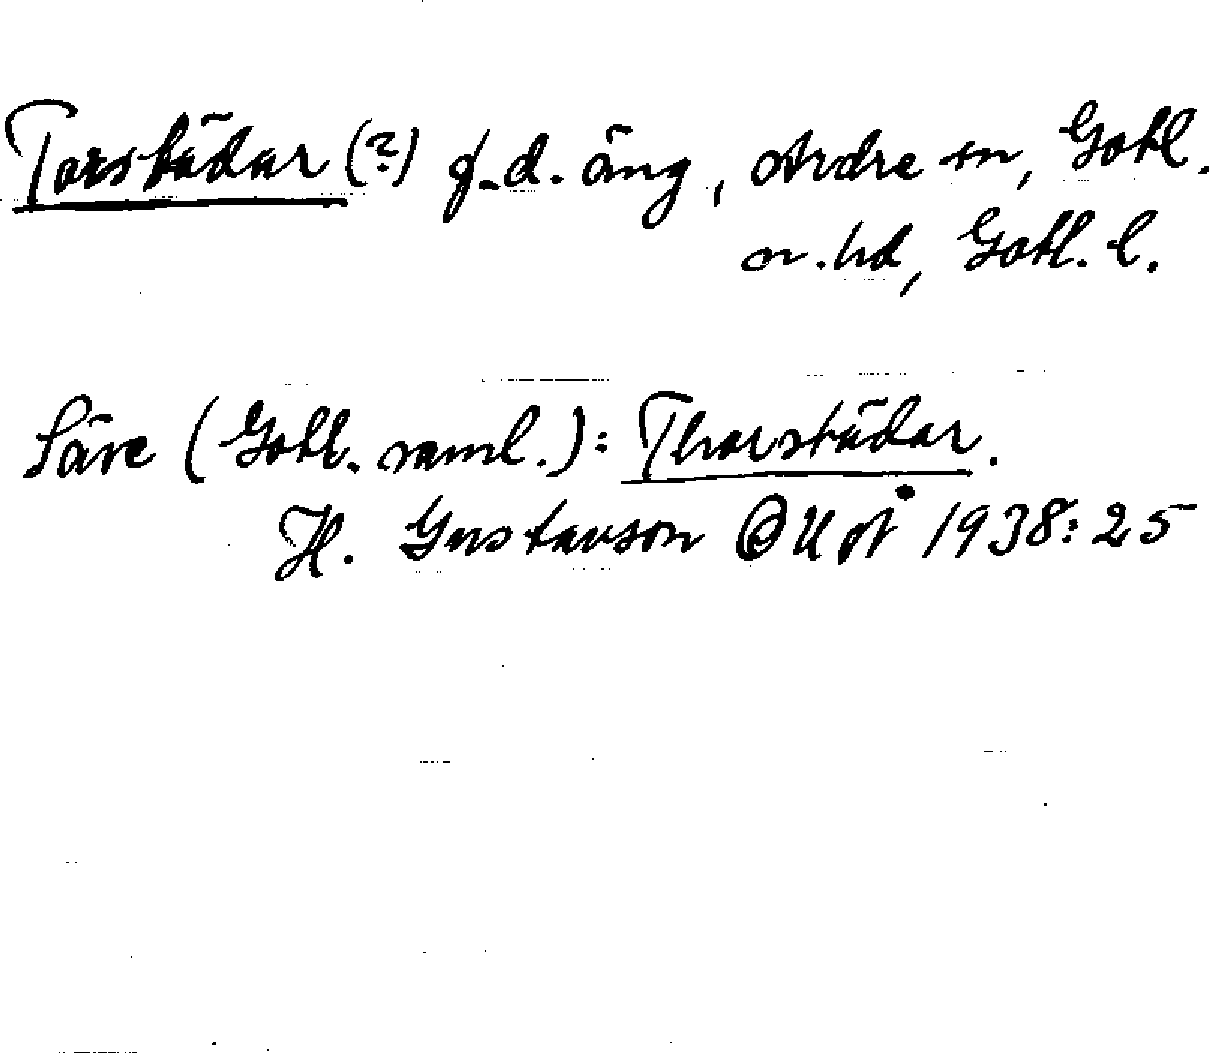 Torstädar (?) f.d. äng, Ardre sn, Gotl.
n. hd, Gotl. l.
Säve (Gotl. saml.): Thorstädar.
H. Gustavson OUÅ 1938: 25